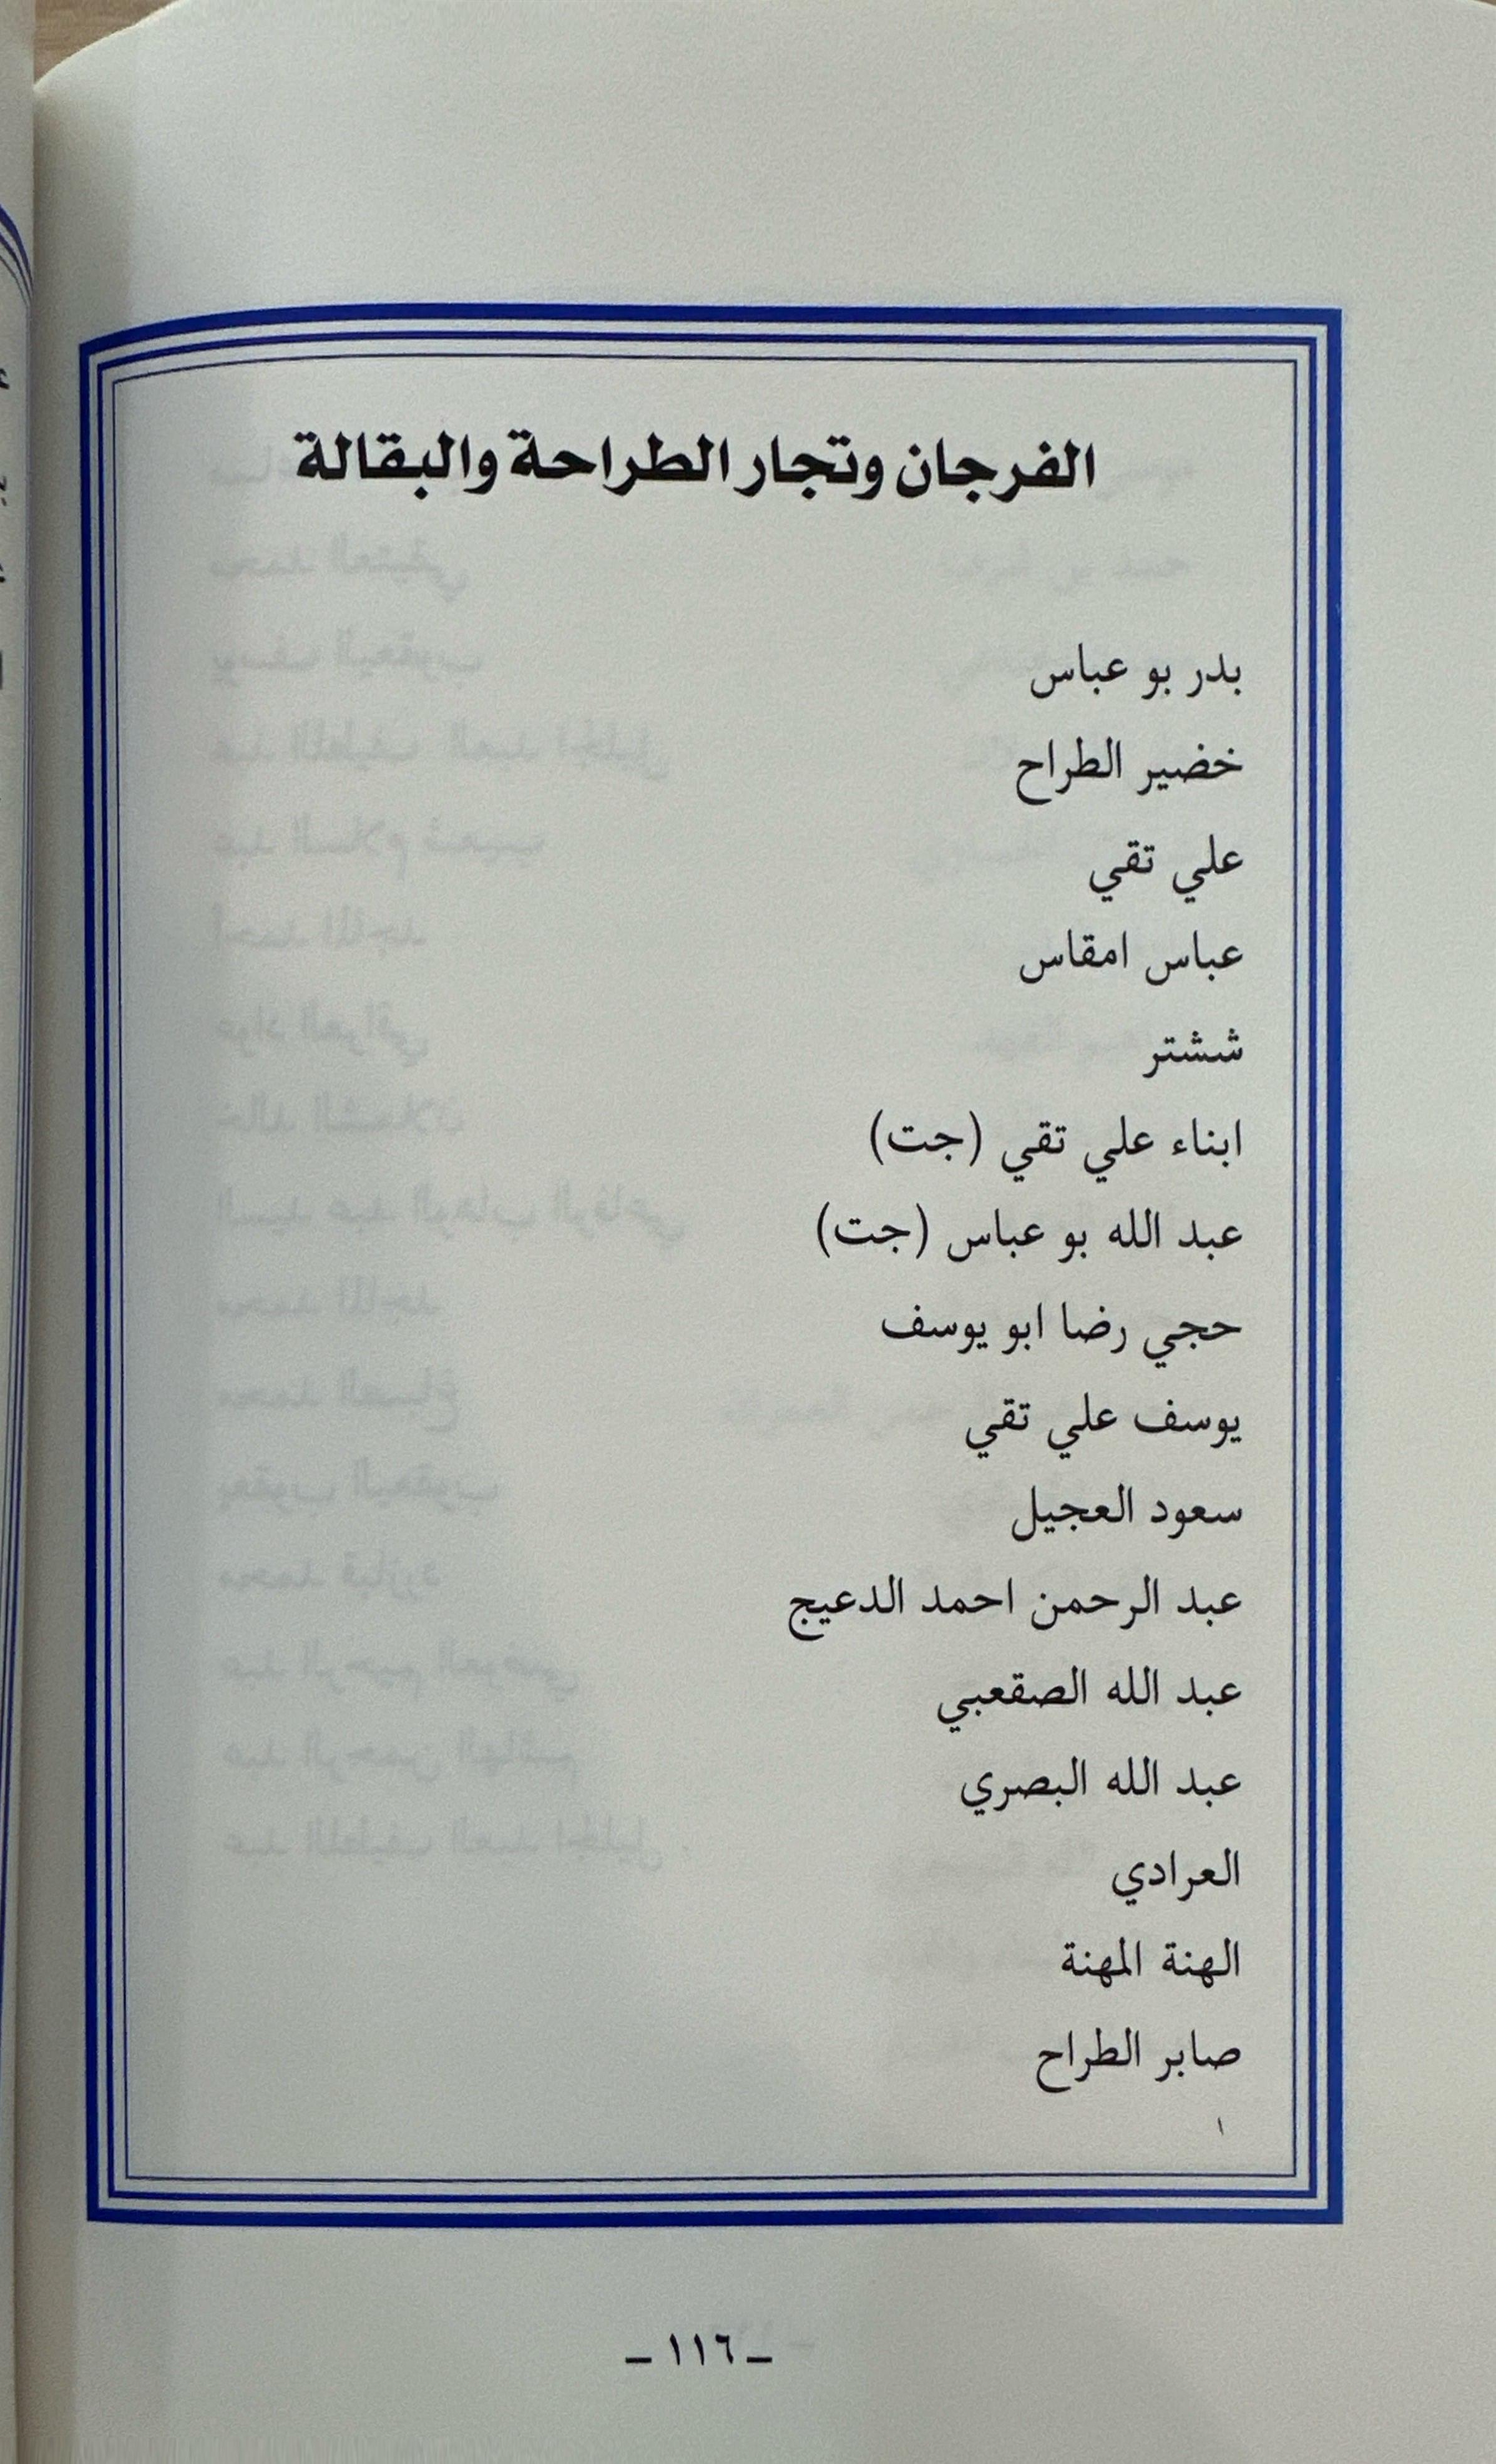 الفرجان وتجار الطراحة والبقالة
بدر بو عباس
خضير الطراح
علي تقي
عباس امقاس
ششتر
ابناء علي تقي (جت)
عبد الله بو عباس (جت)
حجي رضا ابو يوسف
يوسف علي تقي
سعود العجيل
عبد الرحمن احمد الدعيج
عبد الله الصقعبي
عبد الله البصري
العرادي
الهنة المهنة
صابر الطراح
ـ ١١٦ ـ